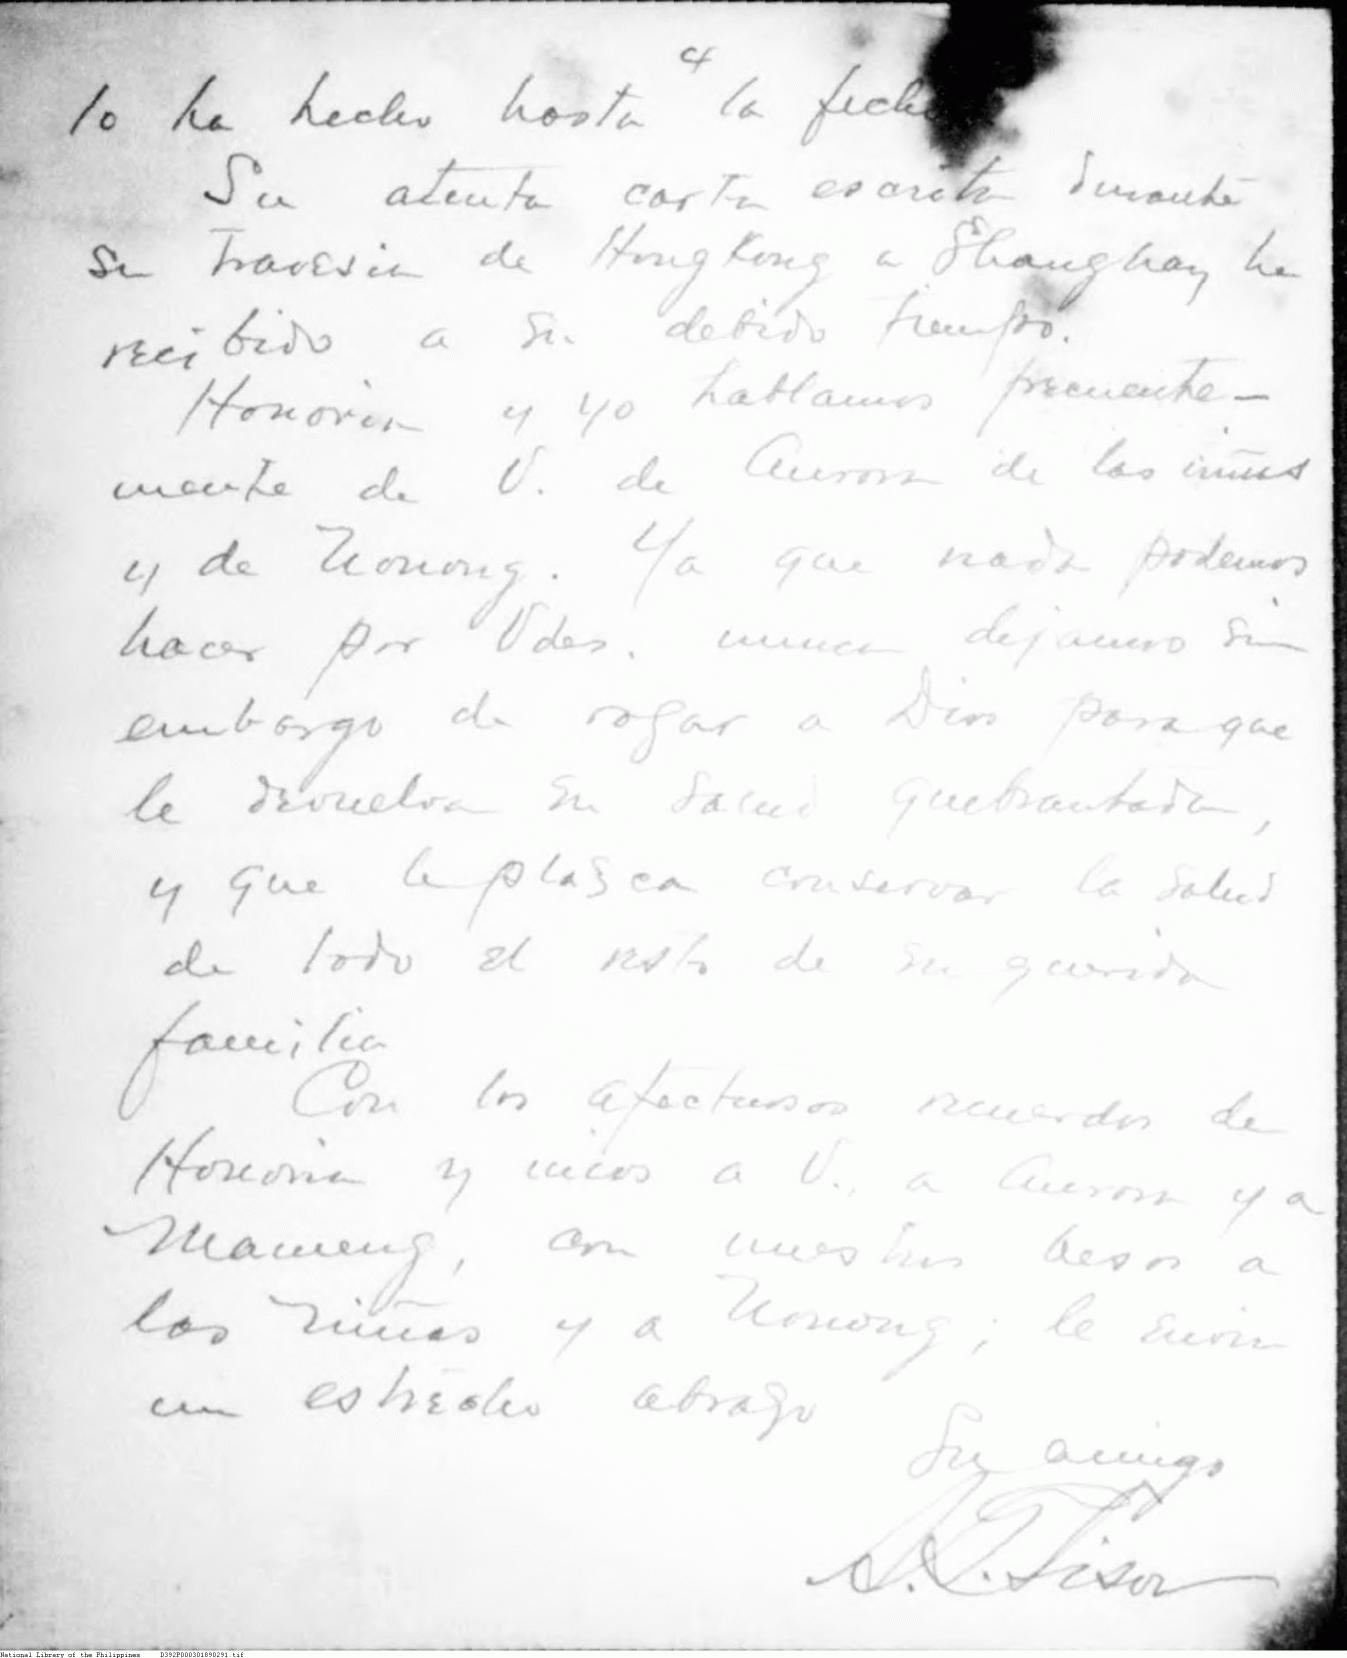 4
lo ha hecho hasta la fecha
Su atenta carta escrita durante
su travesia de HongKong a Shanghay he
recibido a su debido tiempo.
Honoria y yo hablamos frecuente-
mente de V. de Aurora de las niñas
y de Nonong. Ya que nada podemos
hacer por Vdes. nunca dejamos sin
embargo de rogar a Dios para que
le devuelva su salud quebrantada,
y que le plazca conservar la salud
de todo el resto de su querida
familia
Con los afectuosos recuerdos de
Honoria y mios a V., a Aurora y a
Mameng, con nuestros besos a
las niñas y a Nonong; le envia
un estrecho abrazo
Su amigo
National Library of the Philippines D392P000301890291.tif